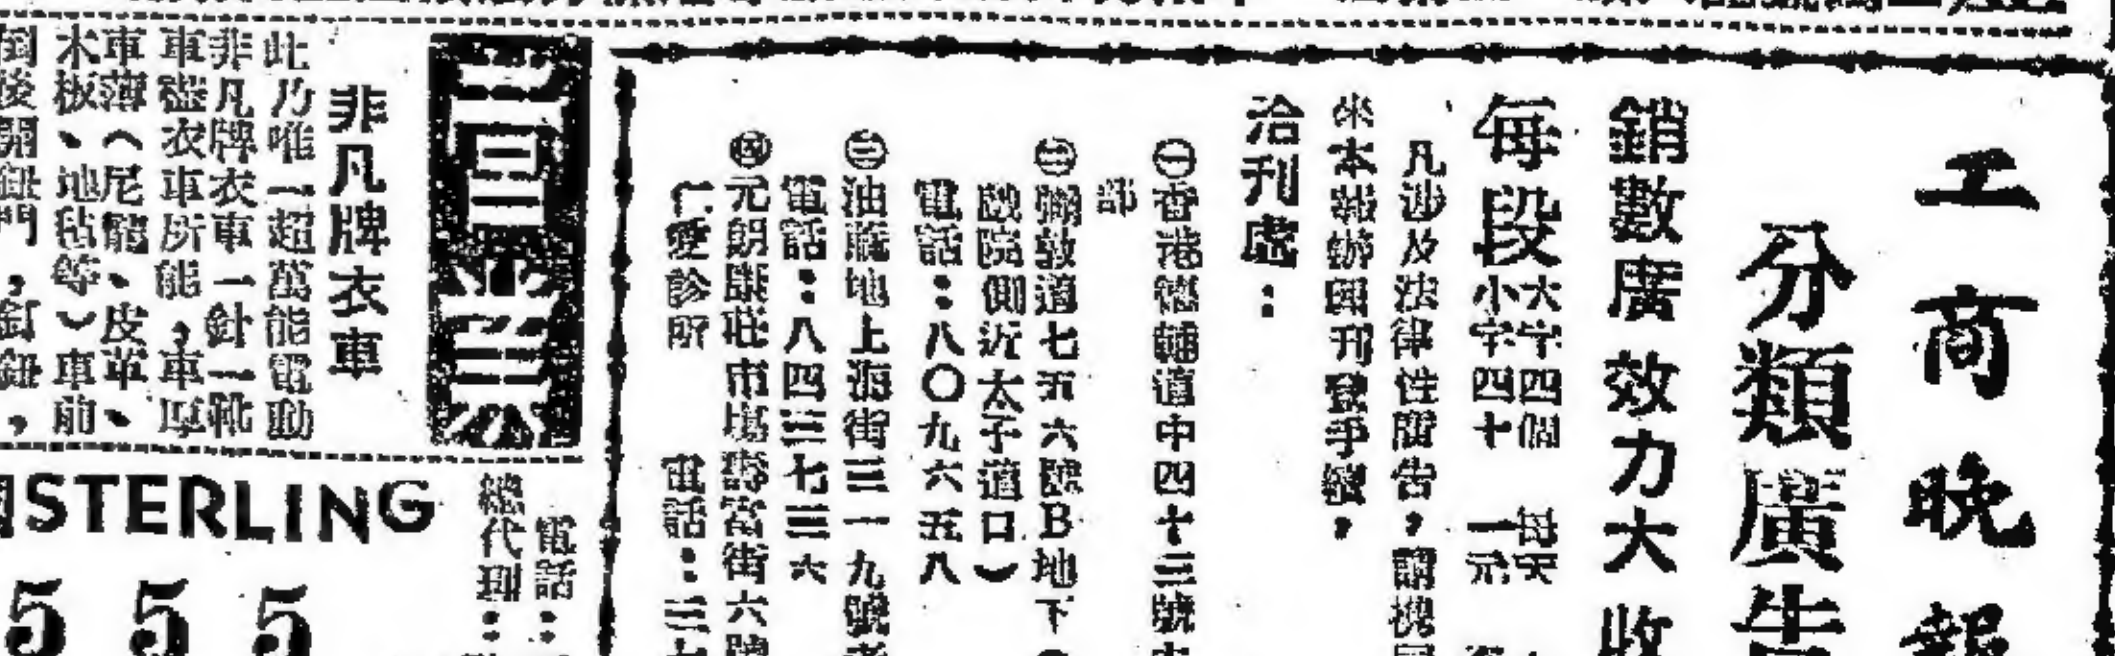 工商晚報
分類廣告
銷數廣 效力大 收
每段 大字四個 每天
小字四十 一元
凡涉及法律性廣告，請
來本報辦理刊登手續，
洽刊處：
㊀香港德輔道中四十三號
部
㊁彌敦道七五六號B地下
戲院側近太子道口）
電話：八〇九六五八
㊂油蔴地上海街三一九號
電話：八四三七三六
㊃元朗康莊市場壽富街六號
仁愛診所 電話：三七
非凡牌衣車
此乃唯一超萬能電動
非凡牌衣車一針一靴
車盡衣車所能，車厚
車薄（尼龍、皮革、
木板、地毡等）車前
倒後開鈕門，釘鈕，
電話：
總代理：
STERLING
555